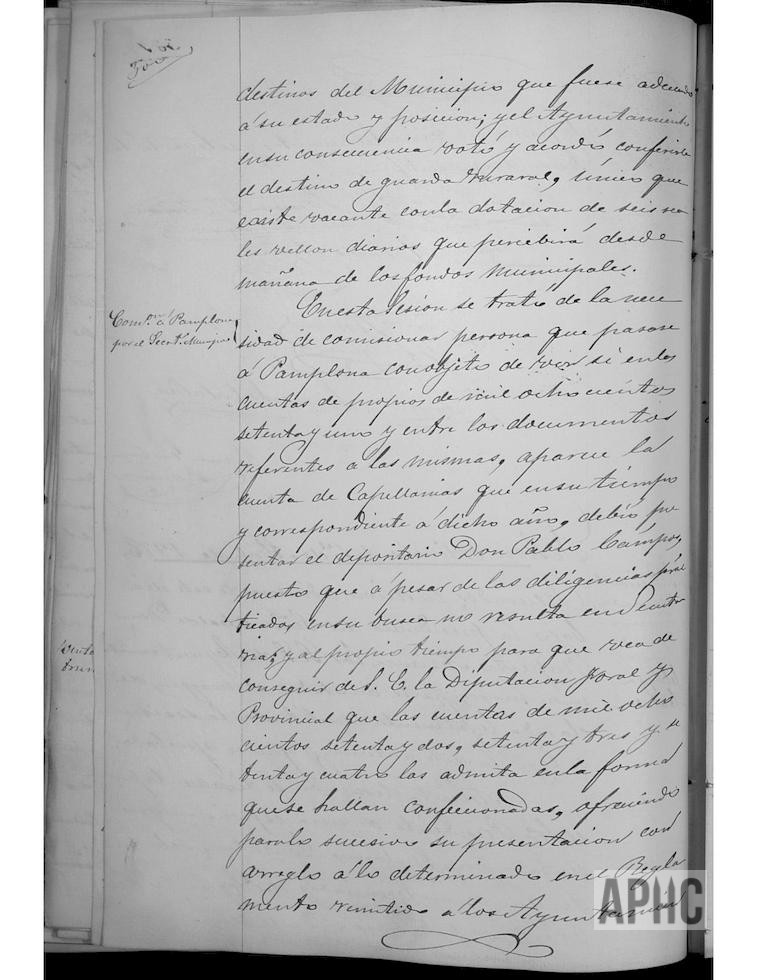 destinos del Municipio que fuese adecuado
á su estado y posicion; y el Ayuntamiento
en su consecuencia votó y acordó conferirle
el destino de guarda ruraral, único que
existe vacante con la dotacion de seis rea
les vellon diarios que percibirá desde
mañana de los fondos municipales.
Comon. á Pamplona
por el Secrto. Municipal
En esta Sesion se trató de la nece
sidad de comisionar persona que pasase
á Pamplona con objeto de ver si en las
cuentas de propios de mil ochocientos
setenta y uno y entre los documentos
referentes a las mismas, aparece la
cuenta de Capellanias que en su tiempo
y correspondiente á dicho año, debió pre
sentar el depositario Don Pablo Campos,
puesto que a pesar de las diligencias prac
ticadas en su busca no resulta en Secreta
ria; y al propio tiempo para que vea de
conseguir de S. E. la Diputacion foral y
Provincial que las cuentas de mil ocho
cientos setenta y dos, setenta y tres y se
tenta y cuatro las admita en la forma
que se hallan confeccionadas, ofreciendo
para lo sucesivo su presentacion con
arreglo á lo determinado en el Regla
mento remitido á los Ayuntamien
APHC